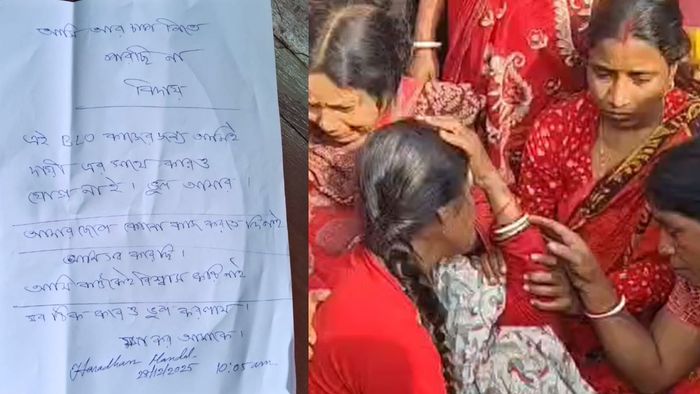 আমি আর চাপ নিতে
পারছি না
বিদায়
এই BLO কাজের জন্য আমিই
দায়ী এর সাথে কারও
যোগ নাই। ভুল আমার।
আমার ছেলে কোনো কাজ করতে দিই নাই
আমি সব করেছি।
আমি কাউকেই বিশ্বাস করি নাই
সব ঠিক করেও ভুল করলাম।
ক্ষমা কর আমাকে।
Haradhan Mandal.
28/12/2025 10:05 am